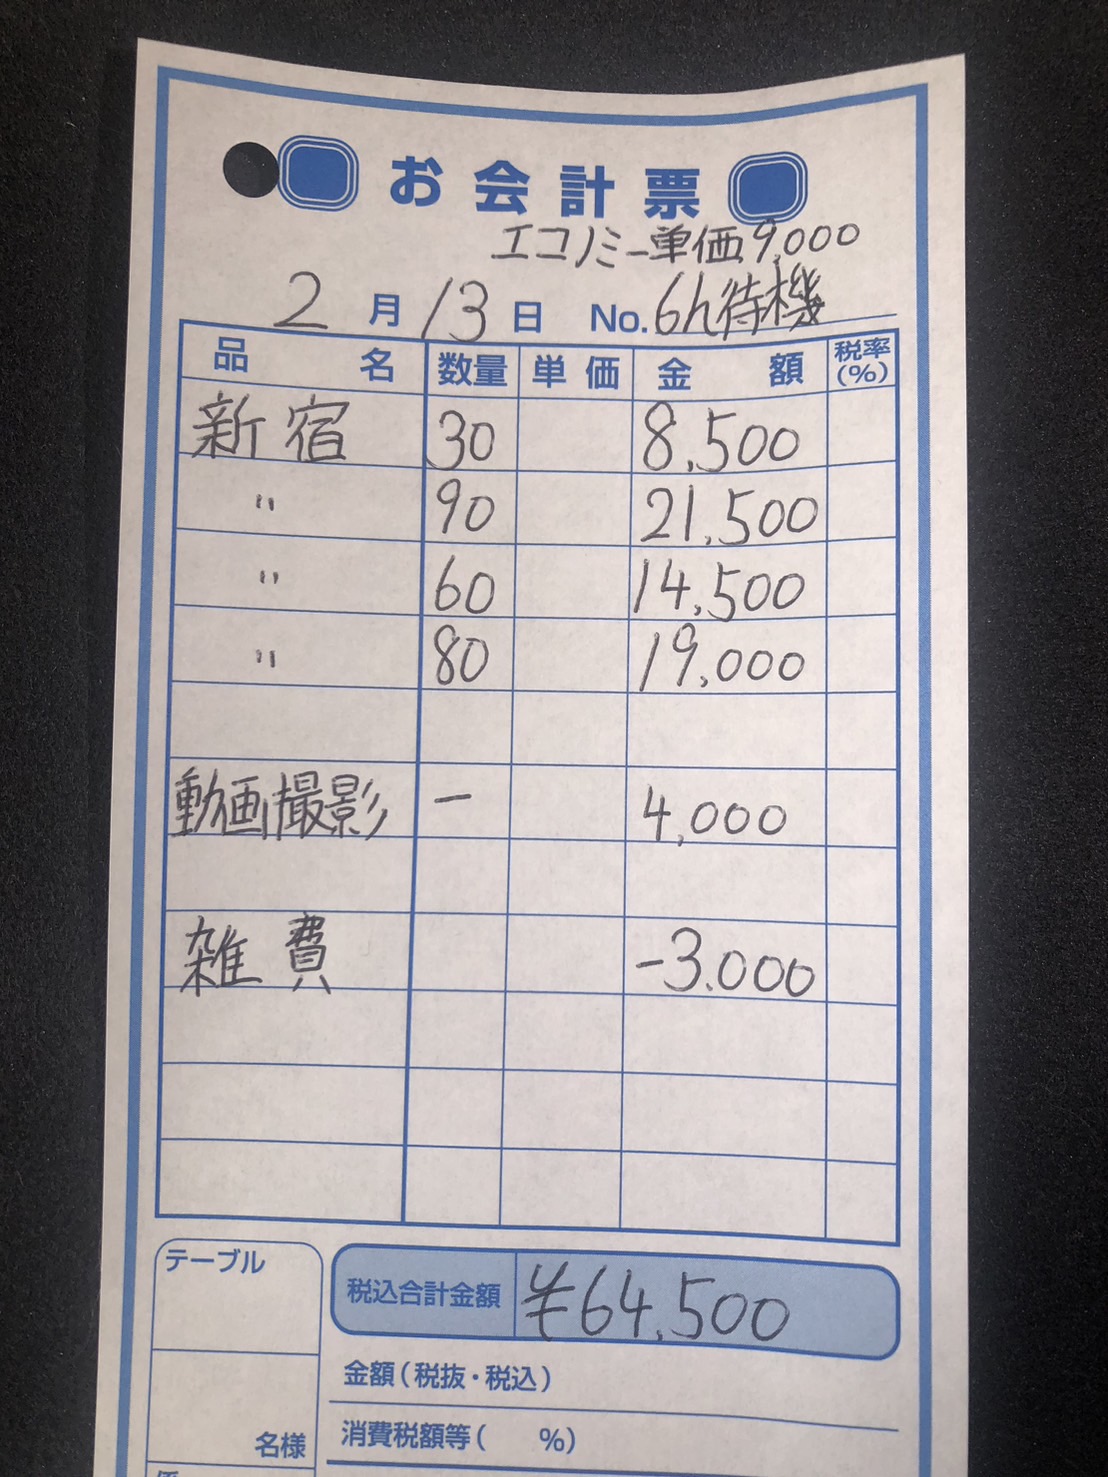 お会計票
エコノミー単価9,000
2月13日 No.6h待機
品名 数量 単価 金額 税率(%)
新宿 30 8,500
〃 90 21,500
〃 60 14,500
〃 80 19,000
動画撮影 ー 4,000
雑費 -3.000
テーブル
税込合計金額 ¥64,500
金額(税抜・税込)
名様
消費税額等( %)